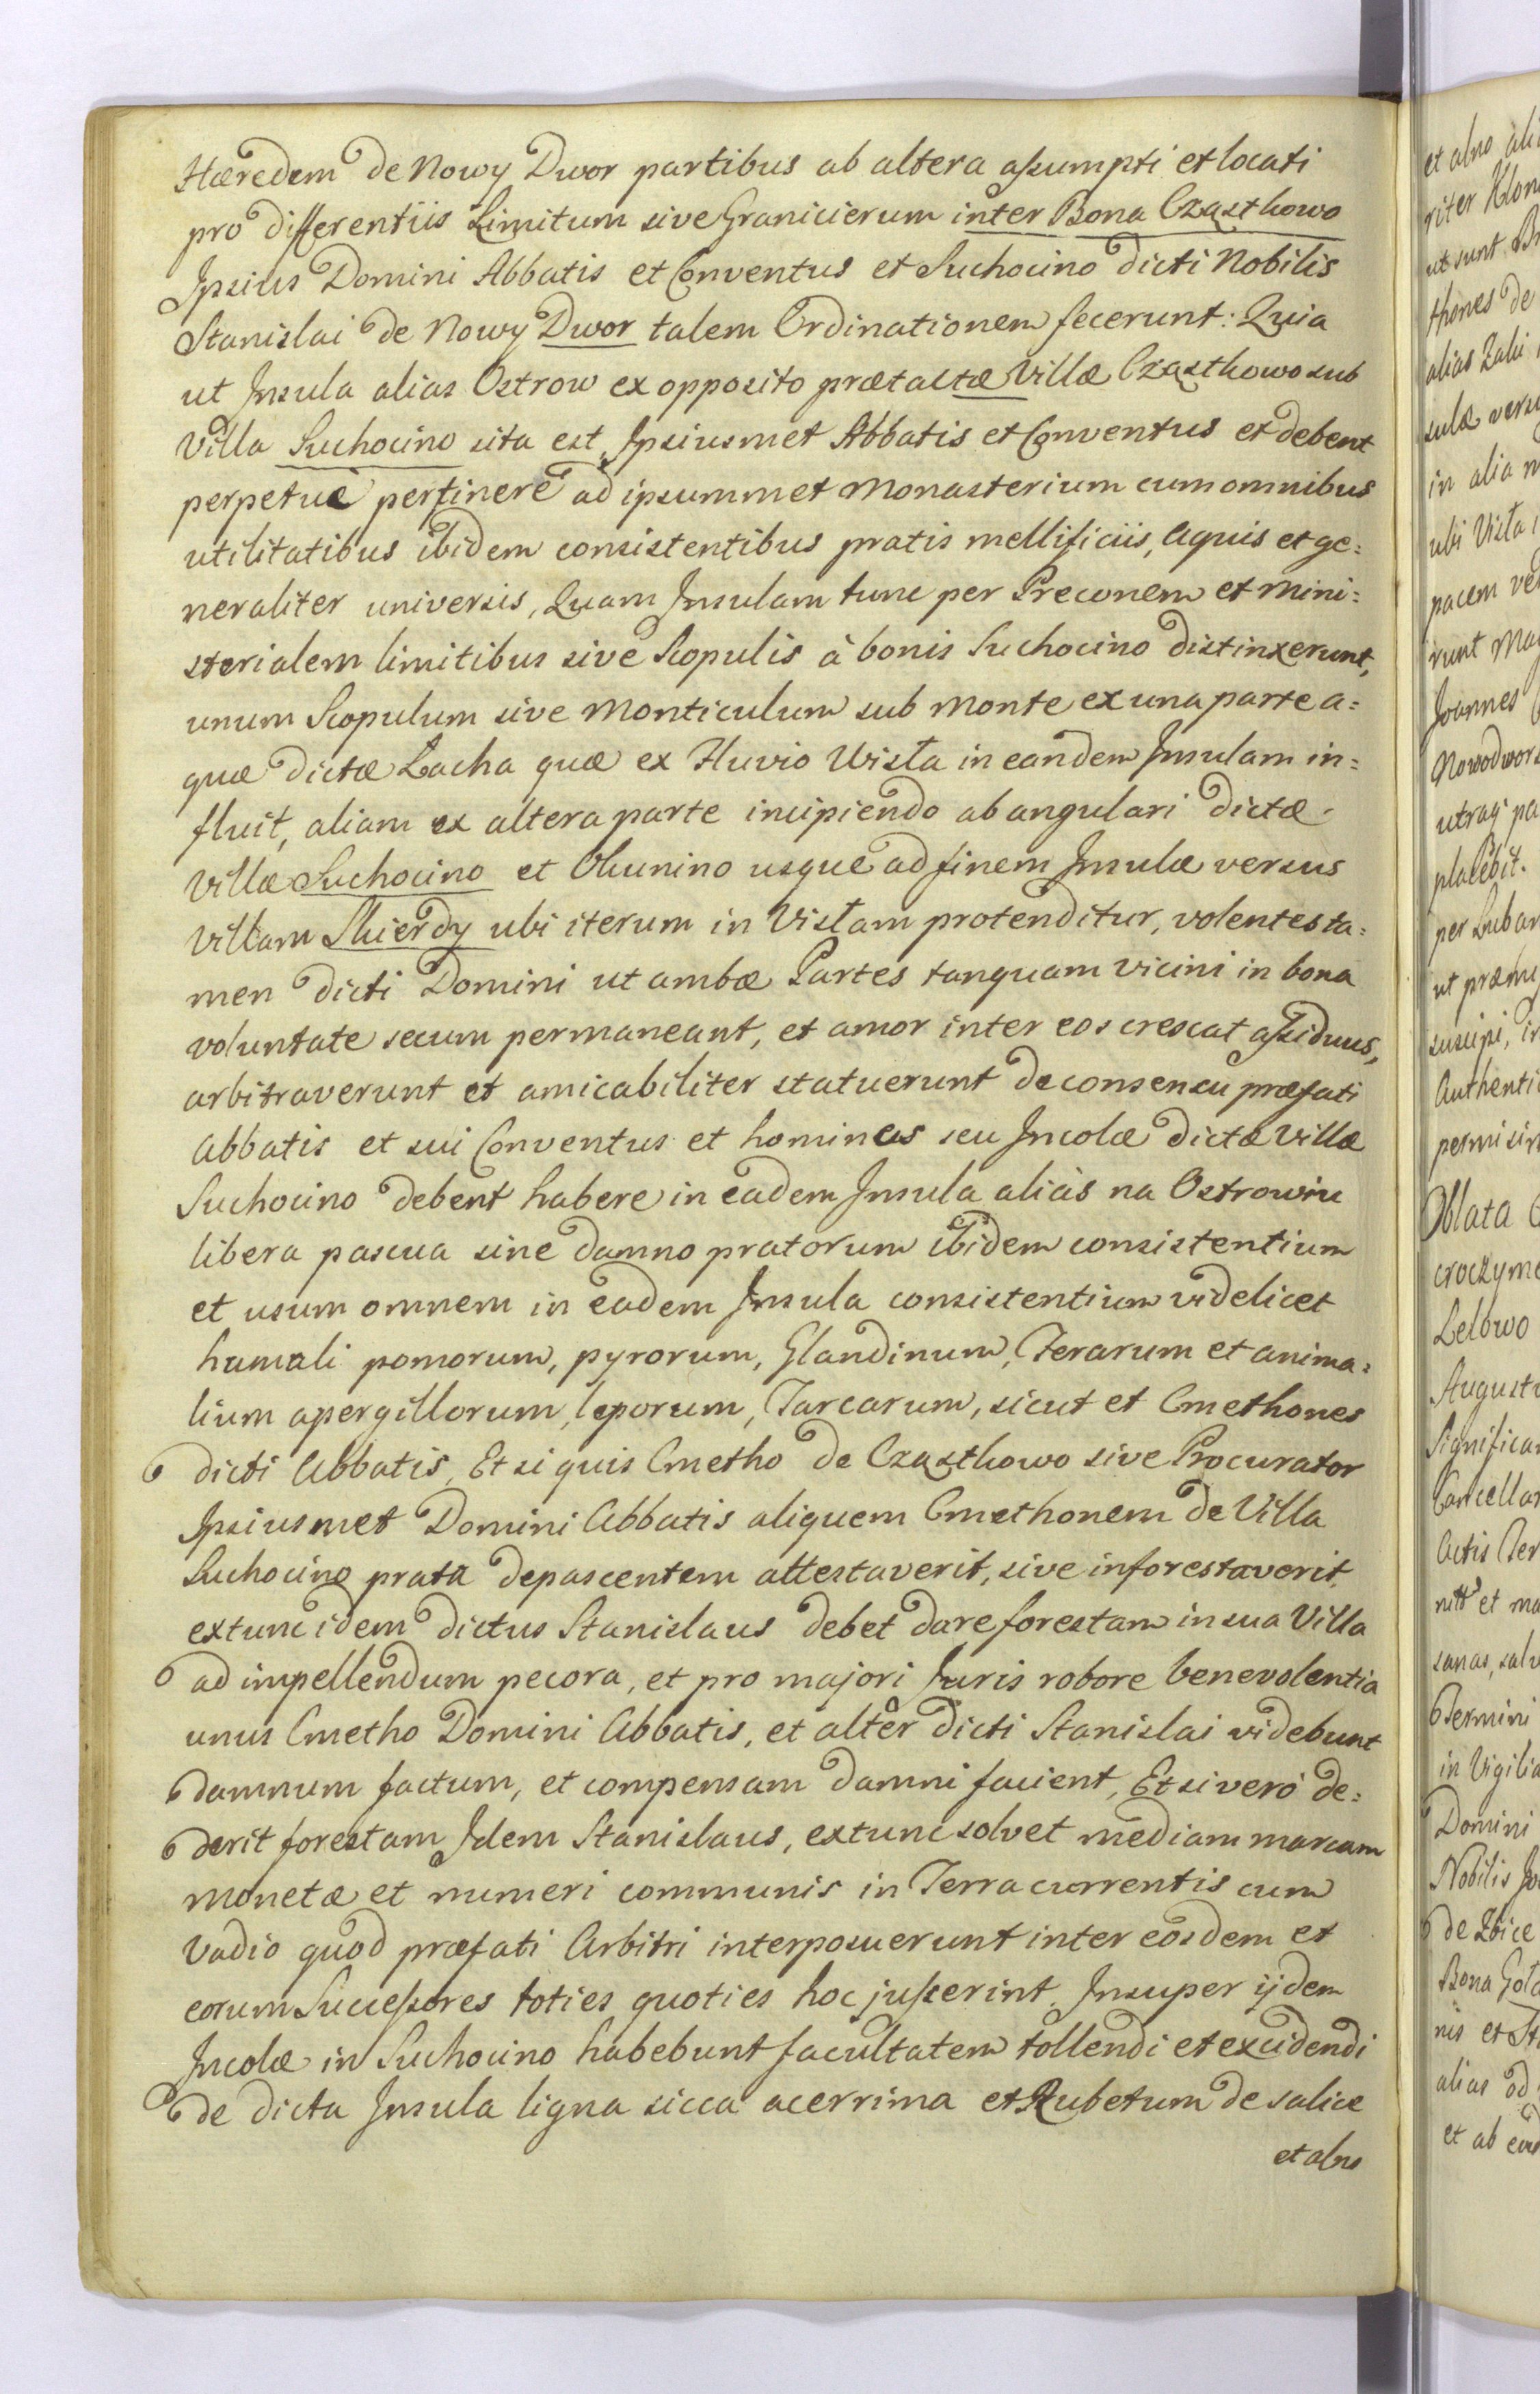 Hæredem de Nowy Dwor partibus ab altera assumpti et locati
pro differentiis Limitum sive Granicierum inter Bona Cząsthowo
Ipsius Domini Abbatis et Conventus et Suchocino dicti Nobilis
Stanislai de Nowy Dwor talem Ordinationem fecerunt: Quia
ut Insula alias Ostrow ex opposito prætactæ Villæ Cząsthowo sub
Villa Suchocino sita est Ipsiusmet Abbatis et Conventus et debent
perpetue pertinere ad ipsummet Monasterium cum omnibus
utilitatibus ibidem consistentibus pratis mellificiis, Aquis et ge=
neraliter universis, Quam Insulam tunc per Preconem et Mini=
sterialem limitibus sive Scopulis à bonis Suchocino distinxerunt,
unum Scopulum sive Monticulum sub Monte ex una parte a=
quæ dictæ Lacha quæ ex Fluvio Wisła in eandem Insulam in=
fluit, aliam ex altera parte incipiendo ab angulari dictæ
Villæ Suchocino et Okunino usque ad finem Insulæ versus
Villam Skierdy ubi iterum in Vislam protenditur, volentes ta=
men dicti Domini ut ambæ Partes tanquam vicini in bona
voluntate secum permaneant, et amor inter eos crescat assiduus,
arbitraverunt et amicabiliter statuerunt de consensu præfati
Abbatis et sui Conventus et homines seu Incolæ dictæ Villæ
Suchocino debent habere in eadem Insula aliàs na Ostrowiu
libera pascua sine damno pratorum ibidem consistentium
et usum omnem in eadem Insula consistentium videlicet
humali pomorum, pyrorum, Glandinum, Ferarum et anima=
lium apergillorum, leporum, Tarcarum, sicut et Cmethones
dicti Abbatis, Et si quis Cmetho de Cząsthowo sive Procurator
Ipsiusmet Domini Abbatis aliquem Cmethonem de Villa
Suchocino prata depascentem attestaverit, sive inforestaverit
extunc idem dictus Stanislaus debet dare forestam in sua Villa
ad impellendum pecora, et pro majori Juris robore benevolentia
unus Cmetho Domini Abbatis, et alter dicti Stanislai videbunt
damnum factum, et compensam damni facient, Et si verò de=
derit forestam Idem Stanislaus, extunc solvet mediam marcam
monetæ et numeri communis in Terra currentis cum
Vadio quod præfati Arbitri interposuerunt inter eosdem et
eorum Successores toties quoties hoc jusserint. Insuper ijdem
Incolæ in Suchocino habebunt facultatem tollendi et excidendi
de dicta Insula ligna sicca acerrima et Rubetum de salice
et alno